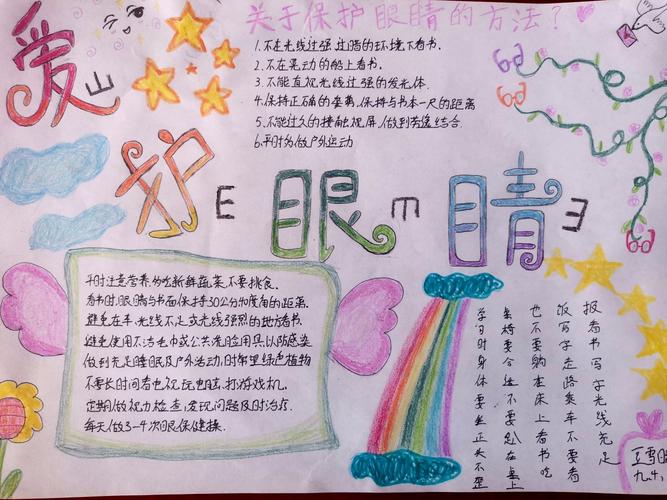 关于保护眼睛的方法？
1.不在光线过强,过暗的环境下看书.
2.不在晃动的船上看书.
3.不能直视光线过强的发光体.
4.保持正确的坐姿,保持与书本一尺的距离
5.不能过久的接触视屏,做到劳逸结合.
6.平时多做户外运动
爱护眼睛
山
E
m
ヨ
平时注意营养,多吃新鲜蔬菜,不要挑食.
看书时,眼睛与书面保持30公分
的距离.
避免在车,光线不足或光线强烈的地方看书.
避免使用不洁毛巾或公共洗脸用具,以防感染
做到充足睡眠及户外活动,时常望绿色植物
不要长时间看电视,玩电脑,打游戏机.
定期做视力检查,发现问题及时治疗.
每天做3-4次眼保健操.
报看书写字光线充足
饭写字走路乘车不要看
也不要躺在床上看书吃
桌椅要合适不要趴在桌上
学习时身体要坐正头不歪